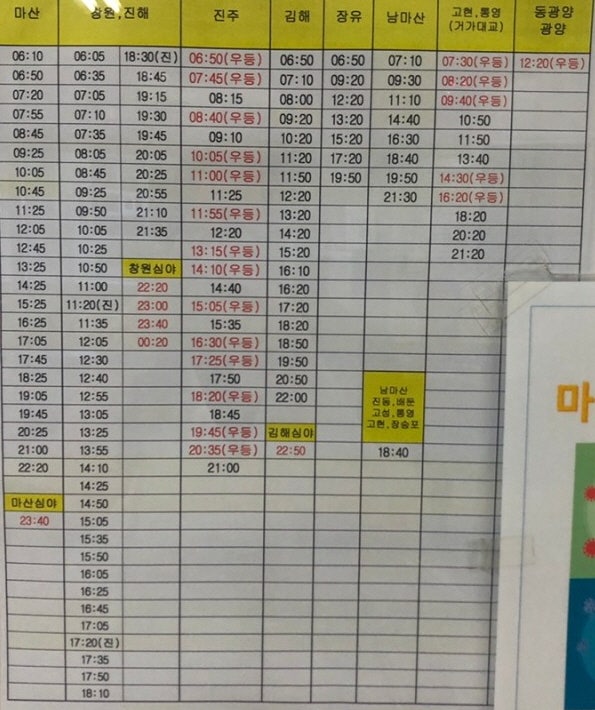 마산 창원,진해 진주 김해 장유 남마산 고현,통영 동광양
(거가대교) 광양
06:10 06:05 18:30(진) 06:50(우등) 06:50 06:50 07:10 07:30(우등) 12:20(우등)
06:50 06:35 18:45 07:45(우등) 07:10 09:20 09:30 08:20(우등)
07:20 07:05 19:15 08:15 08:00 12:20 11:10 09:40(우등)
07:55 07:10 19:30 08:40(우등) 09:20 13:20 14:40 10:50
08:45 07:35 19:45 09:10 10:20 15:20 16:30 11:50
09:25 08:05 20:05 10:05(우등) 11:20 17:20 18:40 13:40
10:05 08:45 20:25 11:00(우등) 11:50 19:50 19:50 14:30(우등)
10:45 09:25 20:55 11:25 12:20 21:30 16:20(우등)
11:25 09:50 21:10 11:55(우등) 13:20 18:20
12:05 10:05 21:35 12:20 14:20 20:20
12:45 10:25 13:15(우등) 15:20 21:20
13:25 10:50 창원심야 14:10(우등) 16:10
14:25 11:00 22:20 14:40 16:20
15:25 11:20(진) 23:00 15:05(우등) 17:20
16:25 11:35 23:40 15:35 18:20
17:05 12:05 00:20 16:30(우등) 18:50
17:45 12:30 17:25(우등) 19:50
18:25 12:40 17:50 20:50 남마산
19:05 12:55 18:20(우등) 22:00 진동,배둔
19:45 13:05 18:45 고성,통영
20:25 13:25 19:45(우등) 김해심야 고현,장승포
21:00 13:55 20:35(우등) 22:50 18:40
22:20 14:10 21:00
14:25
마산심야 14:50
23:40 15:05
15:35
15:50
16:05
16:25
16:45
17:05
17:20(진)
17:35
17:50
18:10
마